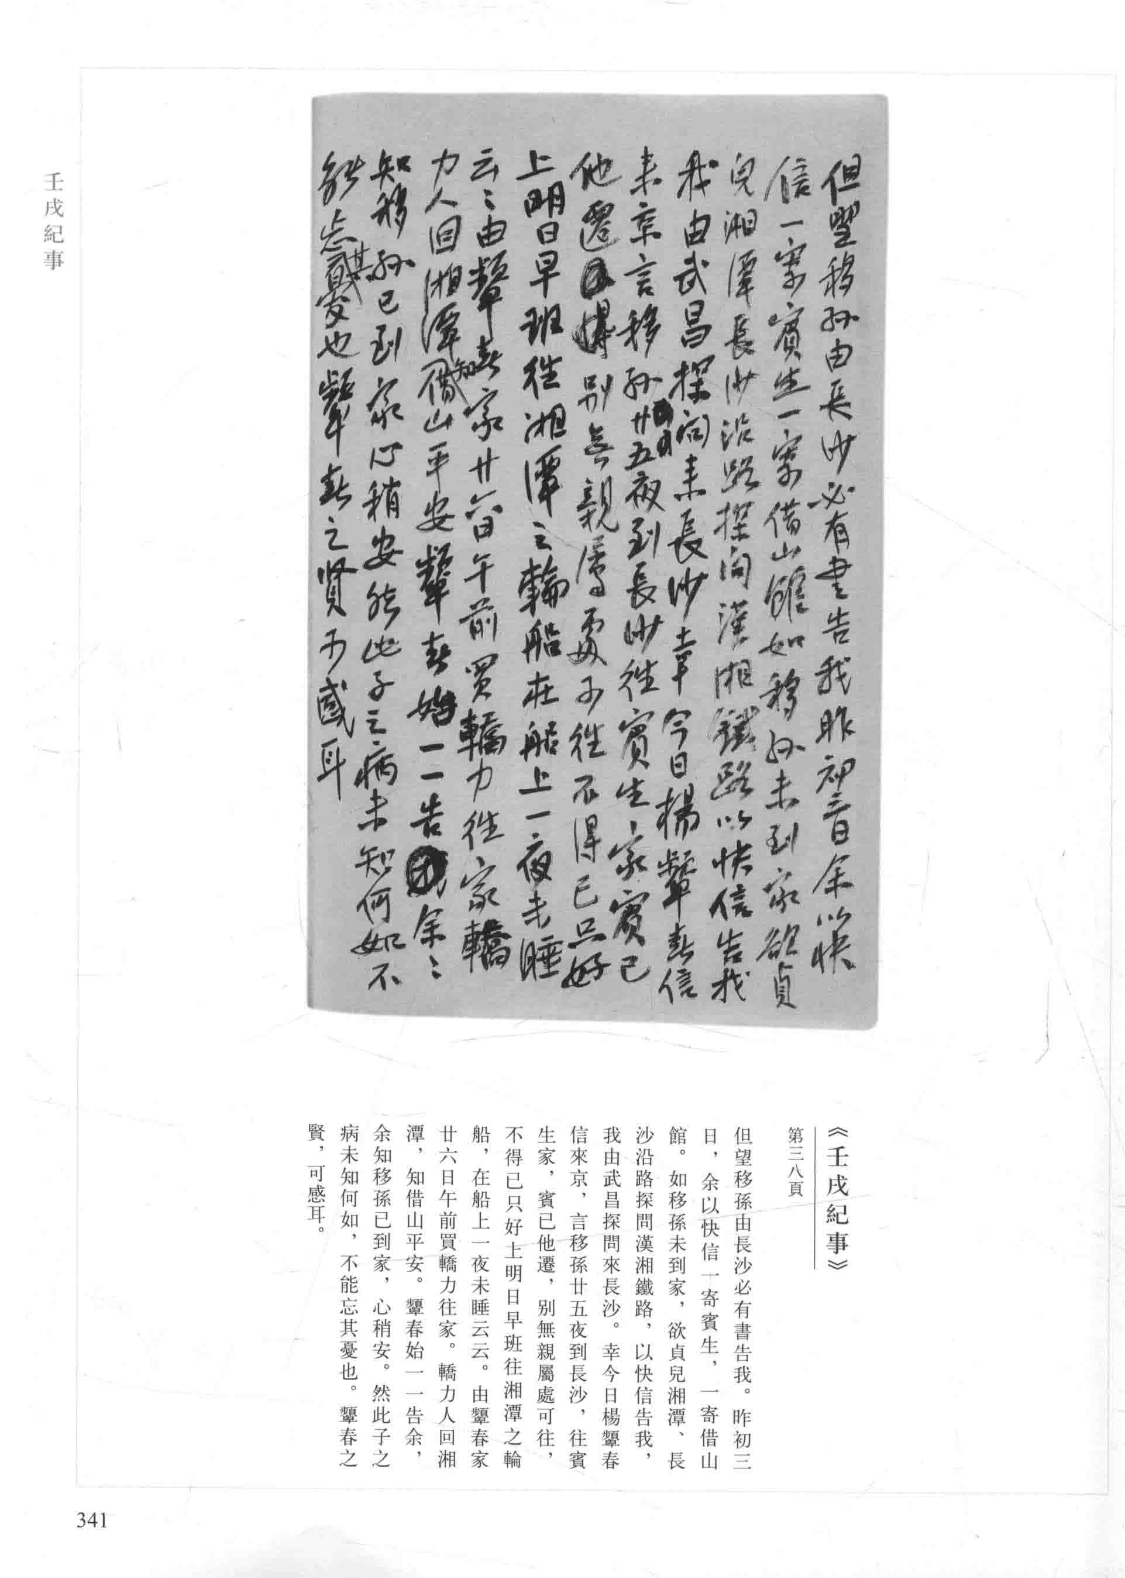 壬戌紀事
但望移孙由長沙必有書告我昨初三日余以快
信一寄賓生一寄借山館如移孙未到家欲貞
兒湘潭長沙沿路探问漢湘鐵路以快信告我
我由武昌探问来長沙幸今日楊顰春信
来京言移孙廿五夜到長沙往賓生家賓已
他遷别無親属處可往不得已只好
上明日早班往湘潭之輪船在船上一夜未睡
云〻由顰春家廿六日午前買轎力往家轎
力人回湘潭知借山平安顰春始一一告余〻
知移孙已到家心稍安然此子之病未知何如不
能忘其憂也顰春之賢可感耳
《壬戌紀事》
第三八頁
但望移孫由長沙必有書告我。昨初三
日，余以快信一寄賓生，一寄借山
館。如移孫未到家，欲貞兒湘潭、長
沙沿路探問漢湘鐵路，以快信告我，
我由武昌探問來長沙。幸今日楊顰春
信來京，言移孫廿五夜到長沙，往賓
生家，賓已他遷，别無親屬處可往，
不得已只好上明日早班往湘潭之輪
船，在船上一夜未睡云云。由顰春家
廿六日午前買轎力往家。轎力人回湘
潭，知借山平安。顰春始一一告余，
余知移孫已到家，心稍安。然此子之
病未知何如，不能忘其憂也。顰春之
賢，可感耳。
341